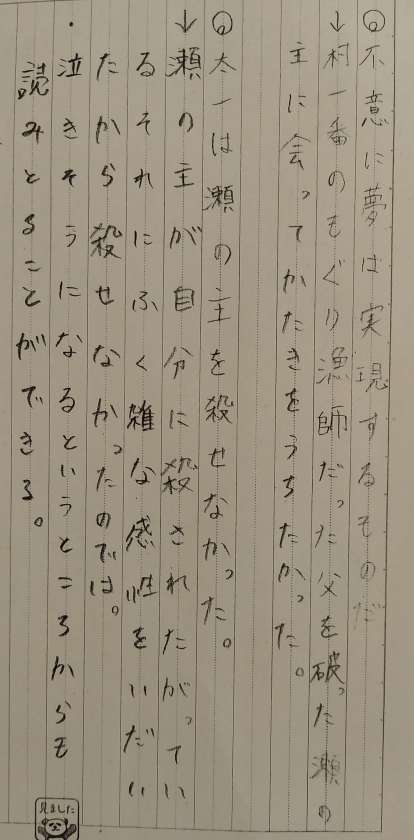 ◎不意に夢は実現するものだ
↓村一番のもぐり漁師だった父を破った瀬の
主に会ってかたきをうちたかった。
◎太一は瀬の主を殺せなかった。
↓瀬の主が自分に殺されたがってい
るそれにふく雑な感性をいだい
たから殺せなかったのでは。
・泣きそうになるというところからも
読みとることができる。
見ました